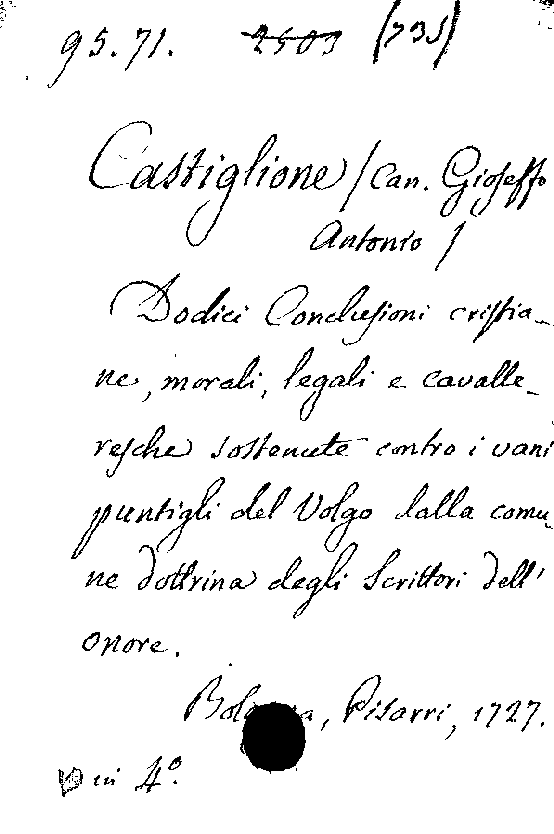 95.71. 2503 (735)
Castiglione / Can. Gioseffo
Antonio /
Dodici Conclusioni cristia-
ne, morali, legali e cavalle-
resche sostenute contro i vani
puntigli del Volgo dalla comu-
ne dottrina degli Scrittori dell'
onore.
Bologna, Pisarri, 1727.
in 4º.